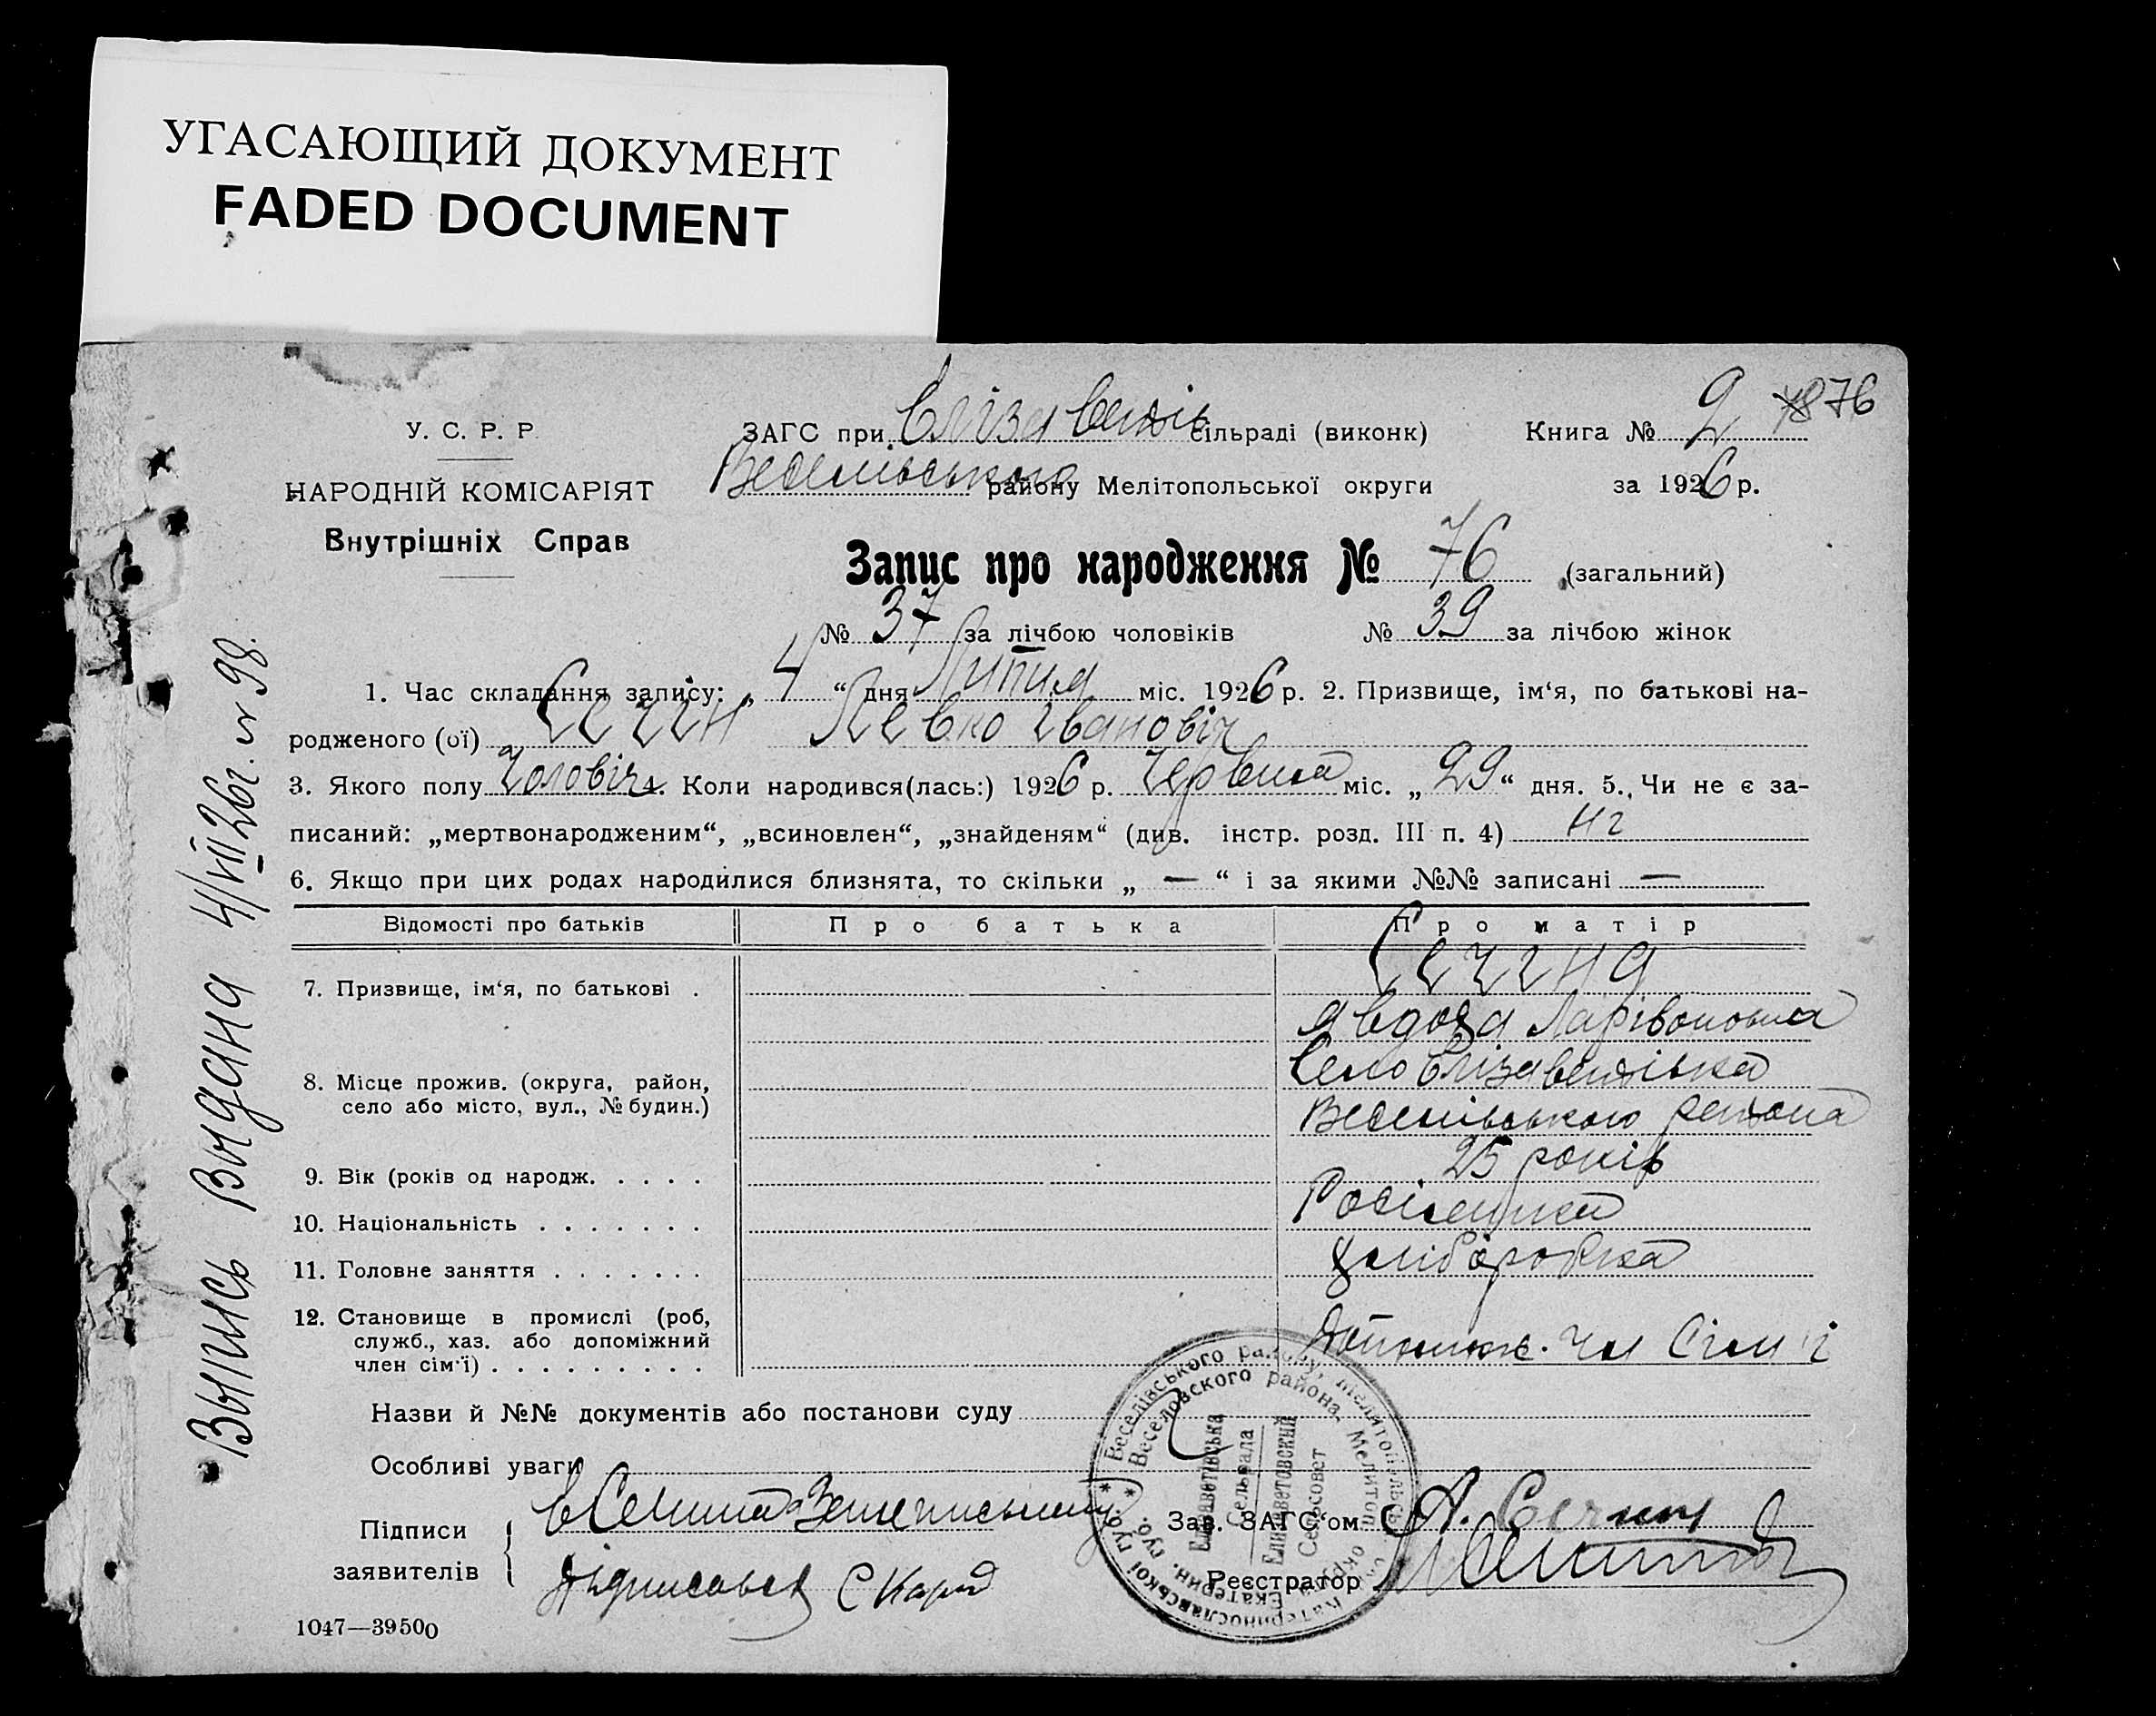 УГАСАЮЩИЙ ДОКУМЕНТ
FADED DOCUMENT
876
У. С. Р. Р.
НАРОДНІЙ КОМІСАРІЯТ
Внутрішніх Справ
ЗАГС при Єлізаветів сільраді (виконк)
Книга № 2
Веселівського району Мелітопольської округи
за 1926 р.
Запис про народження № 76 (загальний)
№ 37 за лічбою чоловіків № 39 за лічбою жінок
1. Час складання запису: „ 4 “ дня Липня міс. 1926 р. 2. Призвище, ім‘я, по батькові на-
родженого (ої) Сечин Левко Іванович
3. Якого полу Чоловіч 4. Коли народився(лась:) 1926 р. Червня міс. „ 29 “ дня. 5. Чи не є за-
писаний: „мертвонародженим“, „всиновлен“, „знайденям“ (див. інстр. розд. III п. 4) Ні
6. Якщо при цих родах народилися близнята, то скільки „ — “ і за якими №№ записані —
Відомості про батьків Про батька Про матір
7. Призвище, ім‘я, по батькові .
Сечина
Явдоха Ларівоновна
8. Місце прожив. (округа, район,
село або місто, вул., № будин.)
Село Єлізаветівка
Веселівського района
9. Вік (років од народж. . . . . 25 років
10. Національність . . . . . . . Росіянка
11. Головне заняття . . . . . . . хліборобка
12. Становище в промислі (роб,
служб., хаз. або допоміжний
член сім‘ї) . . . . . . . . . Допомож. чл Сім‘ї
Назви й №№ документів або постанови суду
Особливі уваги
Підписи
заявителів
Підписався
Зав. ЗАГС‘ом А. Сечин
Реєстратор
1047—39500
Выпись Выдана 4/VII 26г. № 98.
Веселівського району, Мелитопільськ. окр. Катеринославської губ.
Веселовского района, Мелитоп. окр. Екатерин. губ.
Елизаветівська
Сельрада
Елизаветовский
Сельсовет